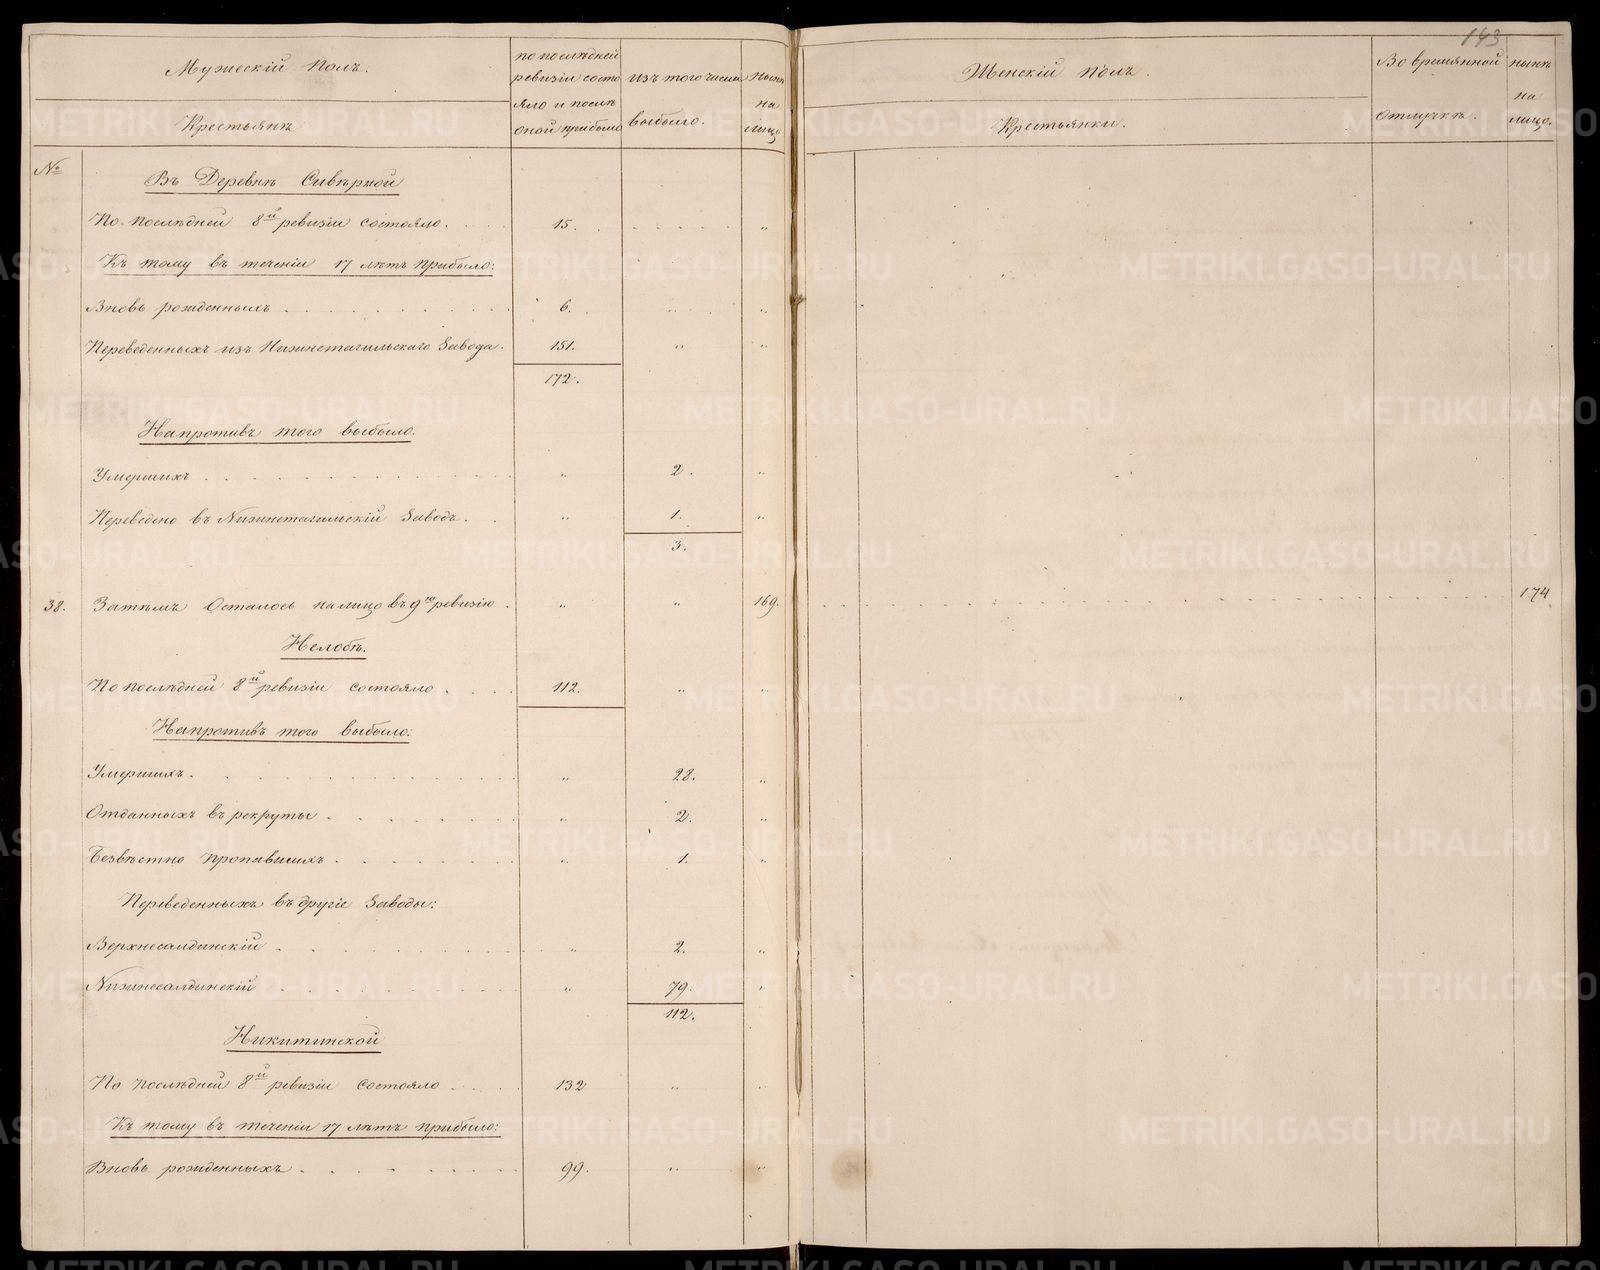 143
Мужескій Полъ.
Крестьянъ
по послѣдней
ревизіи состо
яло и послѣ
оной прибыло
изъ того числа
выбыло.
Нынѣ
на
лицо
Женскій полъ.
Крестьянки.
Во времянной
отлучкѣ.
нынѣ
на
лицо.
№
Въ Деревнѣ Сивѣрной
По послѣдней 8й ревизіи состояло. 15.
Къ тому въ теченіи 17 лѣтъ прибыло:
Вновь рожденныхъ 6.
Переведенныхъ изъ Нижнетагильскаго Завода. 151.
172.
Напротивъ того выбыло.
Умершихъ 2.
Переведено въ Нижнетагильскій Заводъ. 1.
3.
38. Затѣмъ Осталось налицо въ 9ю ревизію 169. 174
Нелобѣ.
По послѣдней 8й ревизіи состояло 112.
Напротивъ того выбыло:
Умершихъ. 28.
Отданныхъ въ рекруты 2.
Безвѣстно пропавшихъ 1.
Переведенныхъ въ другіе Заводы:
Верхнесалдинскій 2.
Нижнесалдинскій 79.
112.
Никитинской
По послѣдней 8й ревизіи состояло 132
Къ тому въ теченіи 17 лѣтъ прибыло:
Вновь рожденныхъ 99.
METRIKI.GASO-URAL.RU